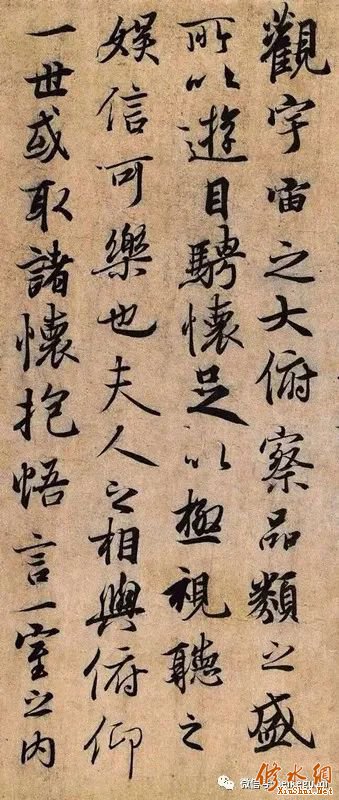 觀宇宙之大俯察品類之盛
所以遊目騁懷足以極視聽之
娛信可樂也夫人之相與俯仰
一世或取諸懷抱悟言一室之內
修水網
XiuShui.Net